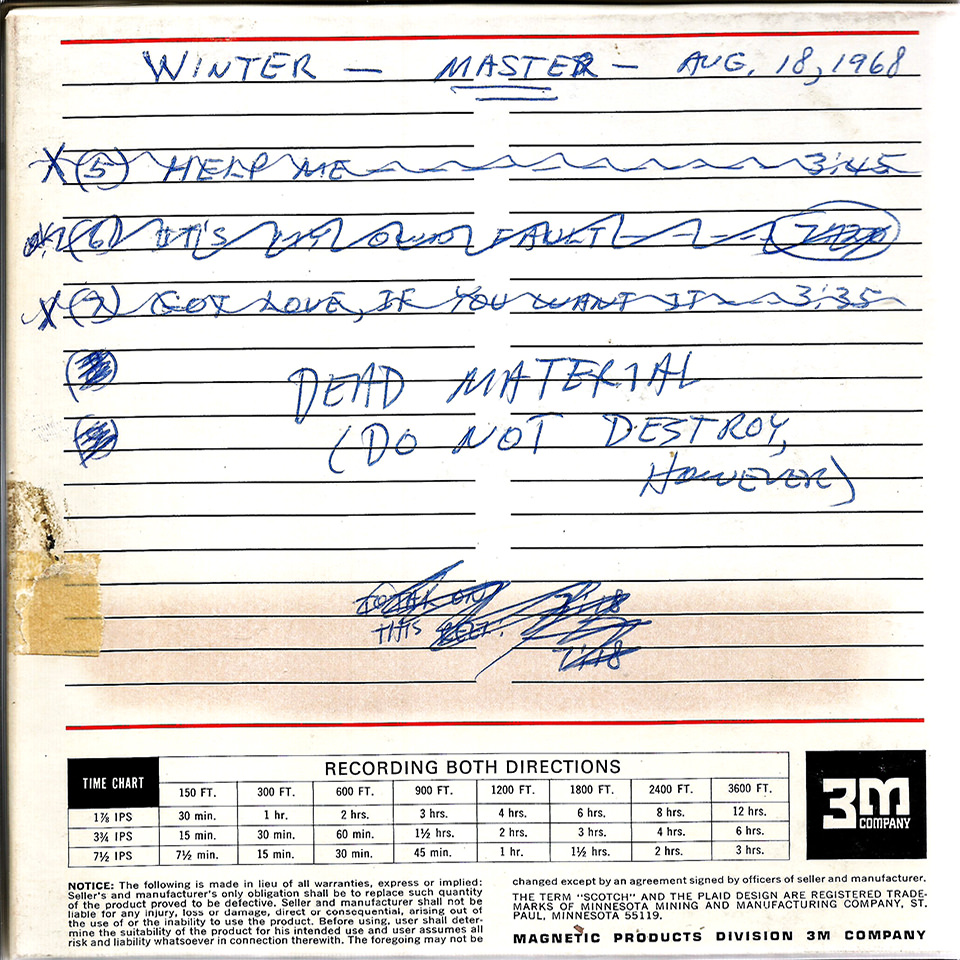 WINTER — MASTER — AUG. 18, 1968
X (5) HELP ME 3:45
OK? (6) IT'S MY OWN FAULT
X (7) GOT LOVE, IF YOU WANT IT 3:35
DEAD MATERIAL
(DO NOT DESTROY,
HOWEVER)
TOTAL ON
THIS REEL:
7:18
TIME CHART
RECORDING BOTH DIRECTIONS
150 FT. 300 FT. 600 FT. 900 FT. 1200 FT. 1800 FT. 2400 FT. 3600 FT.
1⅞ IPS 30 min. 1 hr. 2 hrs. 3 hrs. 4 hrs. 6 hrs. 8 hrs. 12 hrs.
3¾ IPS 15 min. 30 min. 60 min. 1½ hrs. 2 hrs. 3 hrs. 4 hrs. 6 hrs.
7½ IPS 7½ min. 15 min. 30 min. 45 min. 1 hr. 1½ hrs. 2 hrs. 3 hrs.
3M
COMPANY
NOTICE: The following is made in lieu of all warranties, express or implied:
Seller's and manufacturer's only obligation shall be to replace such quantity
of the product proved to be defective. Seller and manufacturer shall not be
liable for any injury, loss or damage, direct or consequential, arising out of
the use of or the inability to use the product. Before using, user shall deter-
mine the suitability of the product for his intended use and user assumes all
risk and liability whatsoever in connection therewith. The foregoing may not be
changed except by an agreement signed by officers of seller and manufacturer.
THE TERM "SCOTCH" AND THE PLAID DESIGN ARE REGISTERED TRADE-
MARKS OF MINNESOTA MINING AND MANUFACTURING COMPANY, ST.
PAUL, MINNESOTA 55119.
MAGNETIC PRODUCTS DIVISION 3M COMPANY